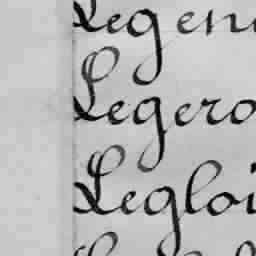 Legen
Legero
Regloi